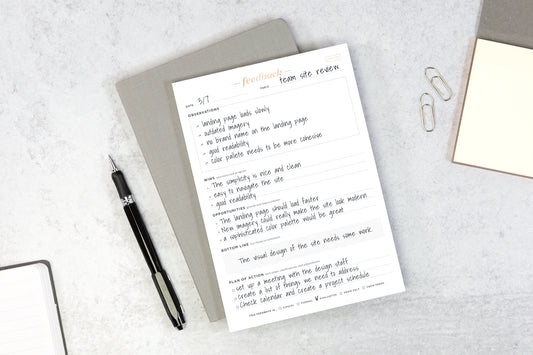 feedback
DATE 3/7
TOPIC team site review
OBSERVATIONS
- landing page loads slowly
- outdated imagery
- no brand name on the landing page
- good readability
- color palette needs to be more cohesive
WINS
- The simplicity is nice and clean
- easy to navigate the site
- good readability
OPPORTUNITIES
- The landing page should load faster
- New imagery could really make the site look modern
- a sophisticated color palette would be great
BOTTOM LINE
The visual design of the site needs some work.
PLAN OF ACTION
set up a meeting with the design staff
create a list of things we need to address
Check calendar and create a project schedule
THIS FEEDBACK IS